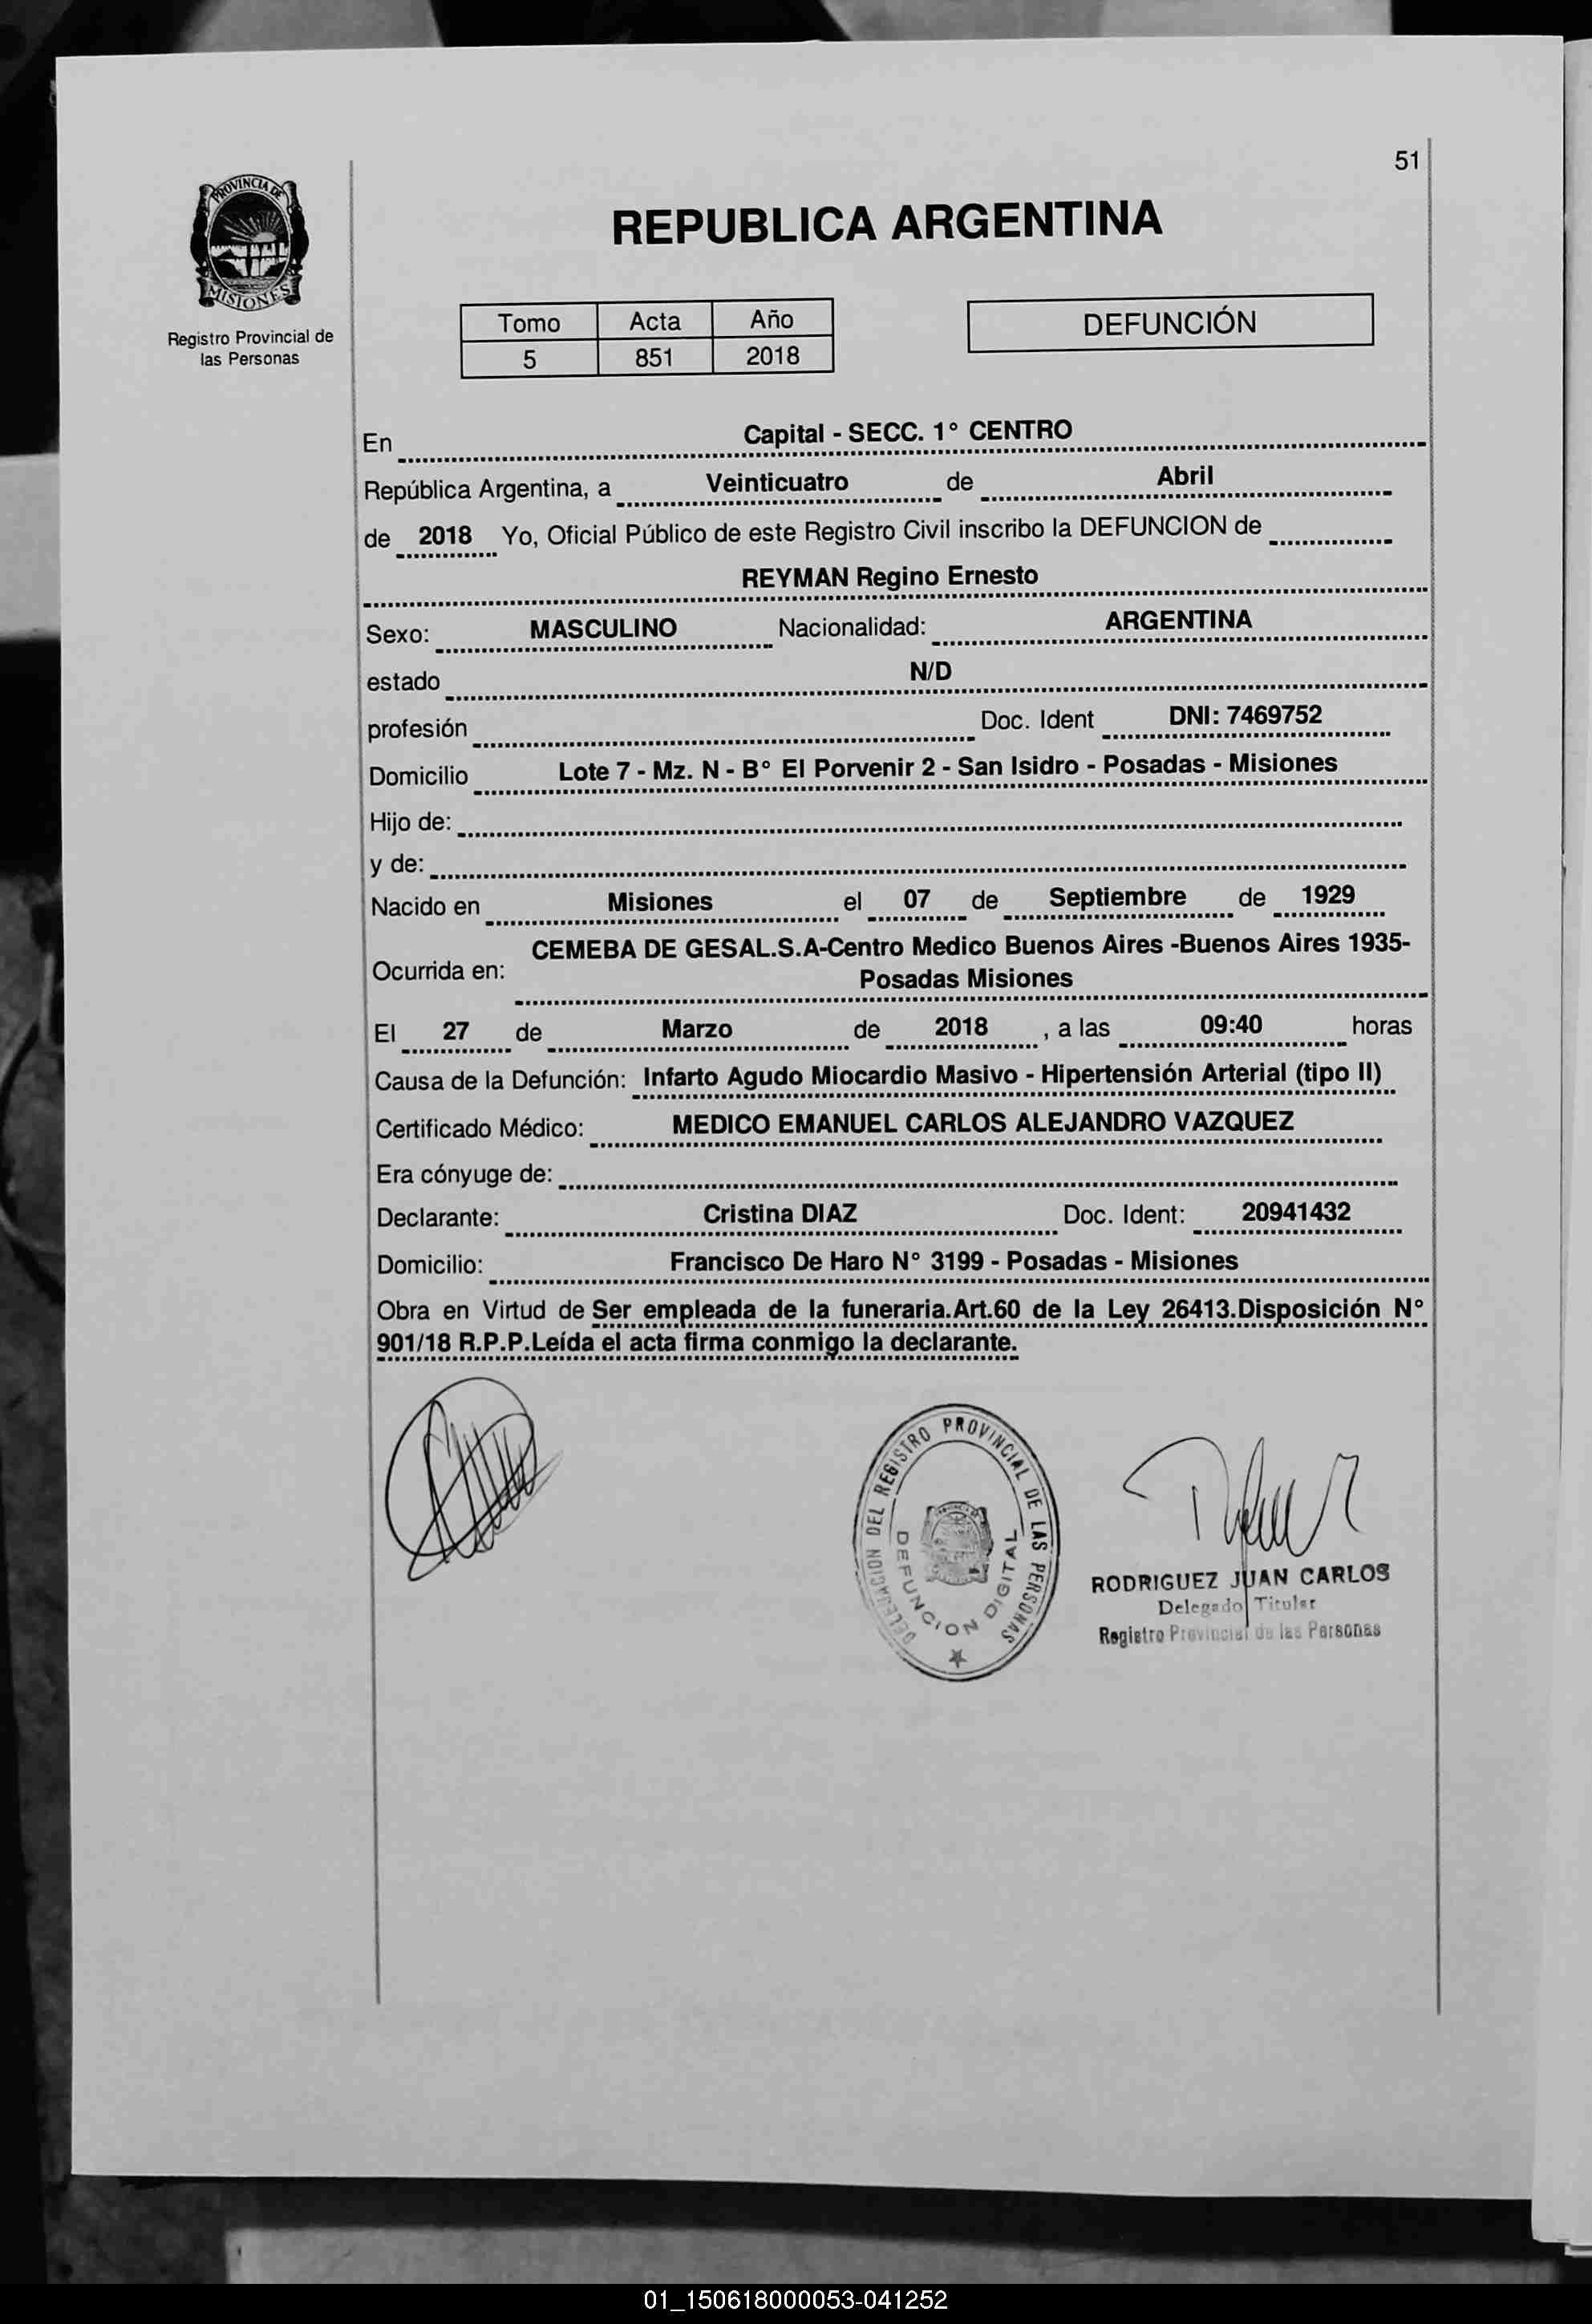 51
PROVINCIA DE
MISIONES
Registro Provincial de
las Personas
REPUBLICA ARGENTINA
Tomo Acta Año
5 851 2018
DEFUNCIÓN
En Capital - SECC. 1° CENTRO
República Argentina, a Veinticuatro de Abril
de 2018 Yo, Oficial Público de este Registro Civil inscribo la DEFUNCION de
REYMAN Regino Ernesto
Sexo: MASCULINO Nacionalidad: ARGENTINA
estado N/D
profesión Doc. Ident DNI: 7469752
Domicilio Lote 7 - Mz. N - B° El Porvenir 2 - San Isidro - Posadas - Misiones
Hijo de:
y de:
Nacido en Misiones el 07 de Septiembre de 1929
Ocurrida en: CEMEBA DE GESAL.S.A-Centro Medico Buenos Aires -Buenos Aires 1935-
Posadas Misiones
El 27 de Marzo de 2018 , a las 09:40 horas
Causa de la Defunción: Infarto Agudo Miocardio Masivo - Hipertensión Arterial (tipo II)
Certificado Médico: MEDICO EMANUEL CARLOS ALEJANDRO VAZQUEZ
Era cónyuge de:
Declarante: Cristina DIAZ Doc. Ident: 20941432
Domicilio: Francisco De Haro N° 3199 - Posadas - Misiones
Obra en Virtud de Ser empleada de la funeraria.Art.60 de la Ley 26413.Disposición N°
901/18 R.P.P.Leída el acta firma conmigo la declarante.
DELEGACION DEL REGISTRO PROVINCIAL DE LAS PERSONAS
DEFUNCION DIGITAL
RODRIGUEZ JUAN CARLOS
Delegado Titular
Registro Provincial de las Personas
01_150618000053-041252